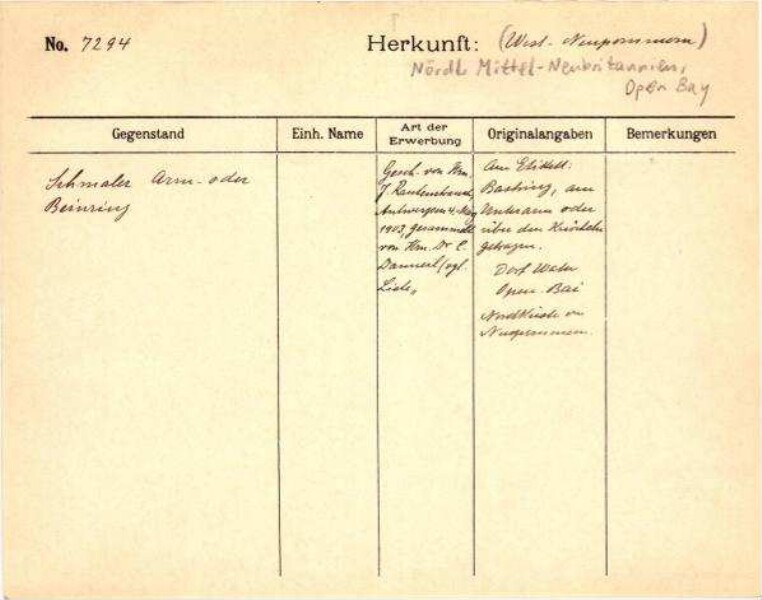 No. 7294
Herkunft: (West-Neupommern)
Nördl. Mittel-Neubritannien,
Open Bay
Gegenstand
Einh. Name
Art der Erwerbung
Originalangaben
Bemerkungen
Schmaler Arm- oder
Beinring
Gesch. von Hrn.
J. Rautenstrauch,
Antwerpen 4. May
1903, gesammelt
von Hrn. Dr E.
Danneil (vgl.
Liste,
Am Etikett:
Bastring, am
Unterarm oder
über den Knöcheln
getragen.
Dorf
Open Bai
Nordküste von
Neupommern.